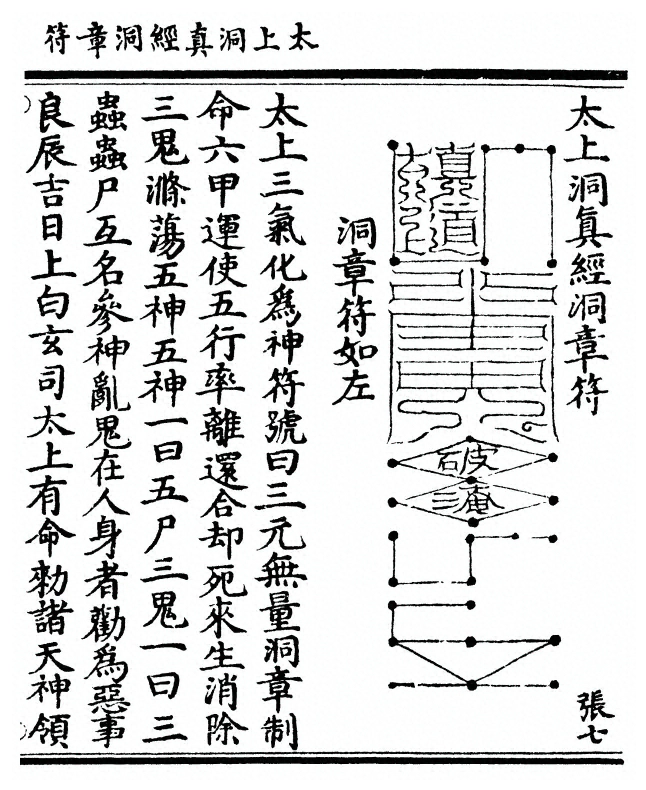 太上洞真經洞章符
太上洞真經洞章符
張七
真
道
太
上
破
三
庵
洞章符如左
太上三氣化為神符號曰三元無量洞章制
命六甲運使五行率離還合却死來生消除
三鬼滌蕩五神五神一曰五尸三鬼一曰三
蟲蟲尸互名參神亂鬼在人身者勸為惡事
良辰吉日上白玄司太上有命勑諸天神領